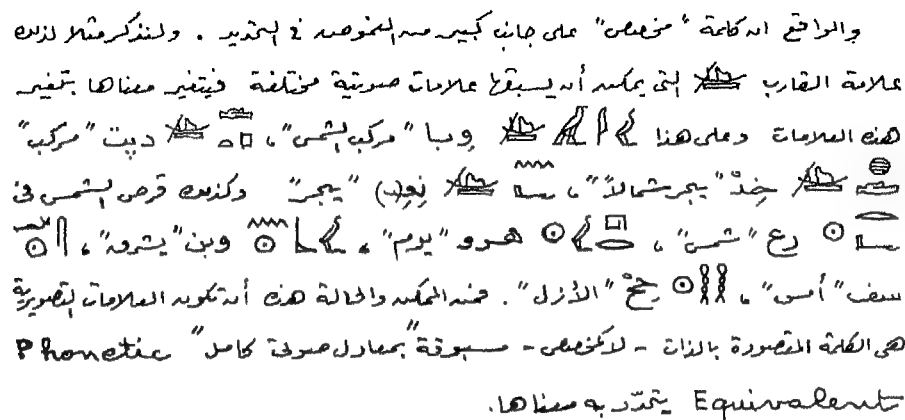 والواقع ان كلمة "مخصص" على جانب كبير من الغموض في التحديد . ولنذكر مثلا لذلك
علامة القارب التي يمكن أن يسبقها علامات صوتية مختلفة فيتغير معناها بتغير
هذه العلامات وعلى هذا وبا "مركب الشمس"، دپت "مركب"
خِدْ "يبحر شمالاً"، نِعِ(ى) "يبحر" وكذلك قرص الشمس في
رع "شمس"، هرو "يوم"، وبن "يشرق"،
سف "أمس"، حِحْ "الأزل". فمن الممكن والحالة هذه أن تكون العلامات التصويرية
هي الكلمة المقصودة بالذات - لا كمخصص - مسبوقة "بمعادل صوتى كامل" Phonetic
Equivalents يتحدّد به معناها.